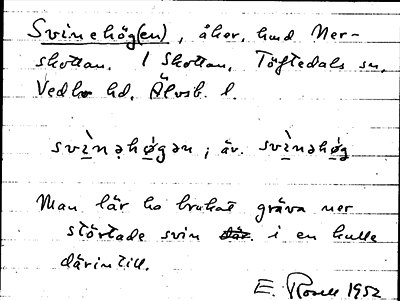 Svinehög(en), åker, hmd Ner-
skottan. I Skottan, Töftedals sn,
Vedbo hd, Älvsb. l.
svìnəhø̀gən; äv. svìnəhø̀g
Man lär ha brukat gräva ner
störtade svin där i en kulle
därintill.
E. Rosell 1952